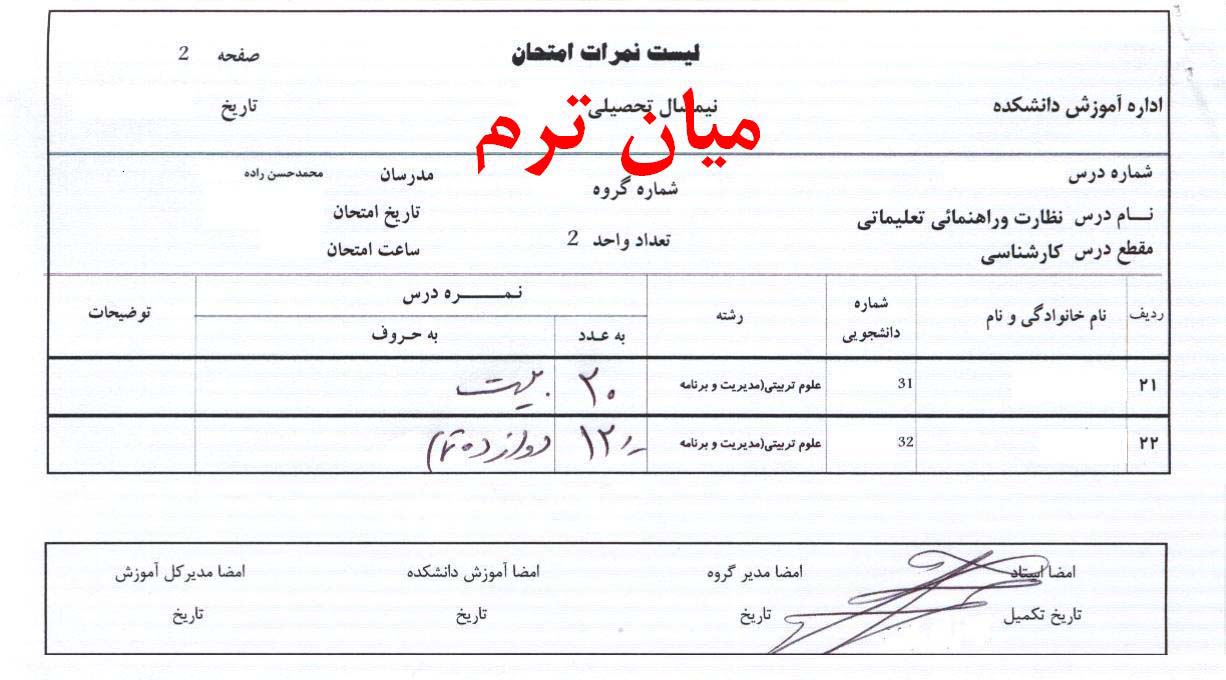 لیست نمرات امتحان
صفحه 2
اداره آموزش دانشکده
نیمسال تحصیلی
تاریخ
میان ترم
شماره درس
شماره گروه
مدرسان محمدحسن زاده
نـــام درس نظارت وراهنمائی تعلیماتی
تاریخ امتحان
مقطع درس کارشناسی
تعداد واحد 2
ساعت امتحان
ردیف
نام خانوادگی و نام
شماره دانشجویی
رشته
نـمـــــــره درس
به عـدد
به حـروف
توضیحات
۲۱ 31 علوم تربیتی(مدیریت و برنامه ۲۰ بیست
۲۲ 32 علوم تربیتی(مدیریت و برنامه ۱۲/- دوازده تمام
امضا استاد امضا مدیر گروه امضا آموزش دانشکده امضا مدیرکل آموزش
تاریخ تکمیل تاریخ تاریخ تاریخ